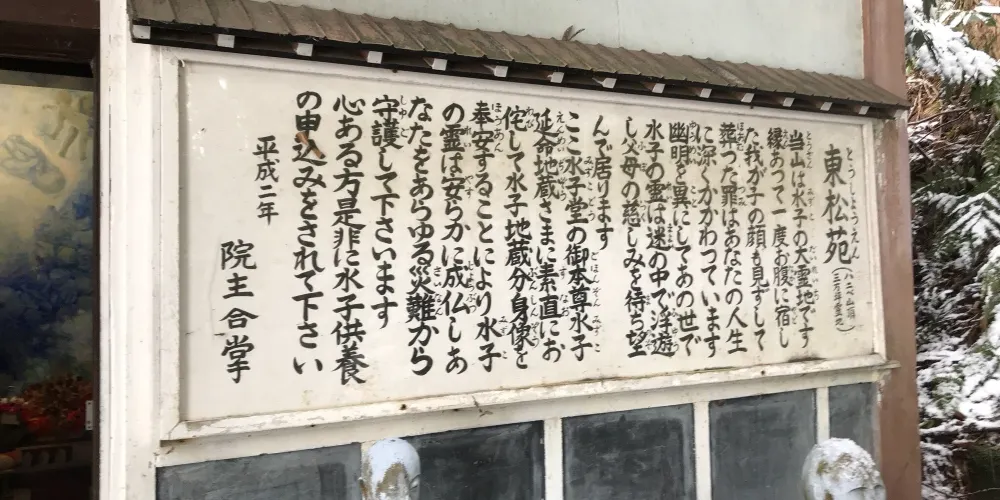 とうしょうえん
東松苑
当山は水子の大霊地です
縁あつて一度お腹に宿し
た我が子の顔も見ずして
葬つた罪はあなたの人生
に深くかかわつています
幽明を異にしてあの世で
水子の霊は迷の中で浮遊
し父母の慈しみを待ち望
んで居ります
ここ水子堂の御本尊水子
延命地蔵さまに素直にお
侘して水子地蔵分身像を
奉安することにより水子
の霊は安らかに成仏しあ
なたをあらゆる災難から
守護して下さいます
心ある方是非に水子供養
の申込みをされて下さい
平成二年
院主合掌